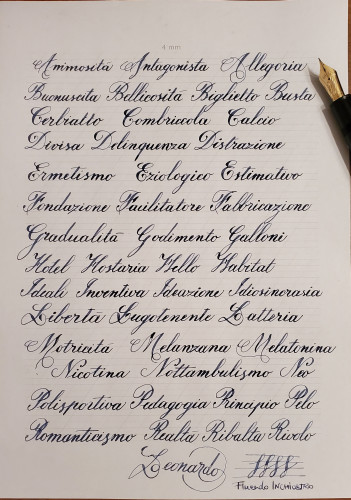 4 mm
Animosità Antagonista Allegoria
Buonuscita Bellicosità Biglietto Busta
Cerbiatto Combriccola Calcio
Divisa Delinquenza Distrazione
Ermetismo Eziologico Estimativo
Fondazione Facilitatore Fabbricazione
Gradualità Godimento Galloni
Hotel Hostaria Hello Habitat
Ideali Inventiva Ideazione Idiosincrasia
Libertà Luogotenente Latteria
Motricità Melanzana Melatonina
Nicotina Nottambulismo Neo
Polisportiva Pedagogia Principio Pelo
Romanticismo Realtà Ribalta Rivolo
Leonardo
INCHIOSTRO